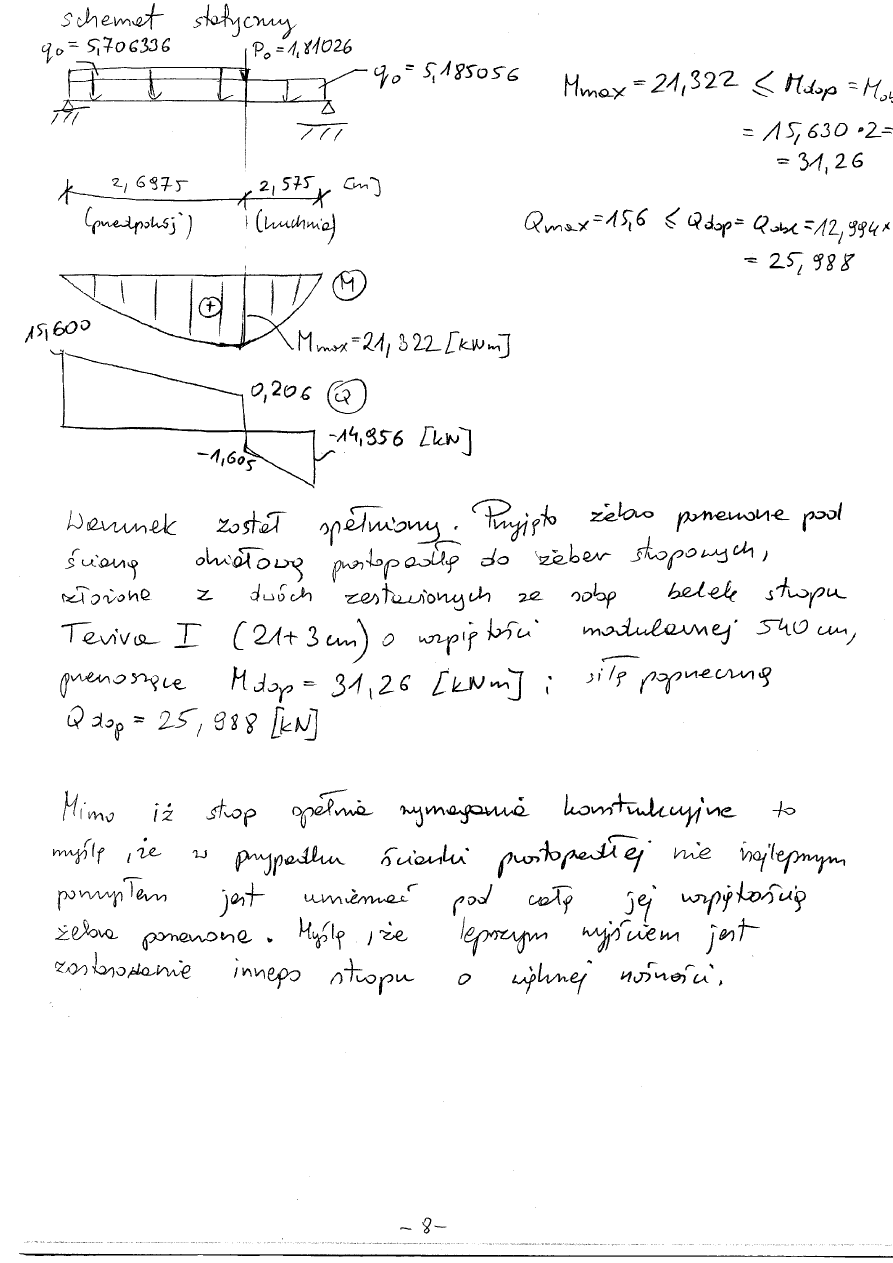 schemat statyczny
q₀ = 5,706336
P₀ = 1,81026
q₀ = 5,185056
Mmax = 21,322 ≤ Mdop = Mob
= 15,630 · 2 =
= 31,26
2,6975
2,575
[m]
(przedpokój)
(kuchnia)
Qmax = 15,6 ≤ Qdop = Qobl = 12,994 ×
= 25,988
+
M
Mmax = 21,322 [kNm]
15,600
0,206
Q
-14,956 [kN]
-1,605
Warunek został spełniony. Przyjęto żebro ponewone pod
ścianę działową prostopadłą do żeber stropowych,
złożone z dwóch zestawionych ze sobą belek stropu
Teriva I (21+3cm) o rozpiętości modularnej 540 cm,
przenoszące Mdop = 31,26 [kNm] i siłę poprzeczną
Qdop = 25,988 [kN]
Mimo iż strop spełnia wymagania konstrukcyjne to
myślę, że w przypadku ścianki prostopadłej nie najlepszym
pomysłem jest umieszczać pod całą jej rozpiętością
żebra ponewone. Myślę, że lepszym wyjściem jest
zastosowanie innego stropu o większej nośności.
- 8 -